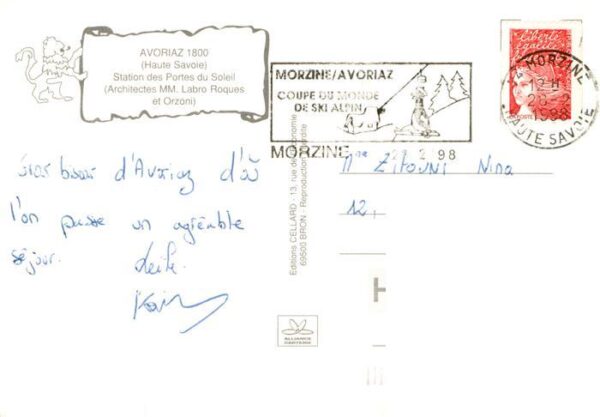 AVORIAZ 1800
(Haute Savoie)
Station des Portes du Soleil
(Architectes MM. Labro Roques
et Orzoni)
MORZINE/AVORIAZ
COUPE DU MONDE
DE SKI ALPIN
MORZINE
2 98
Liberté
égalité
MORZINE
12 H
1998
HAUTE SAVOIE
Gros bisous d'Avoriaz d'où
l'on passe un agréable
séjour.
Leïla
Editions CELLARD - 13, rue de l'économie
69500 BRON - Reproduction interdite
Mme ZITOUNI Nina
12,
H
ALLIANCE
CARTERIE